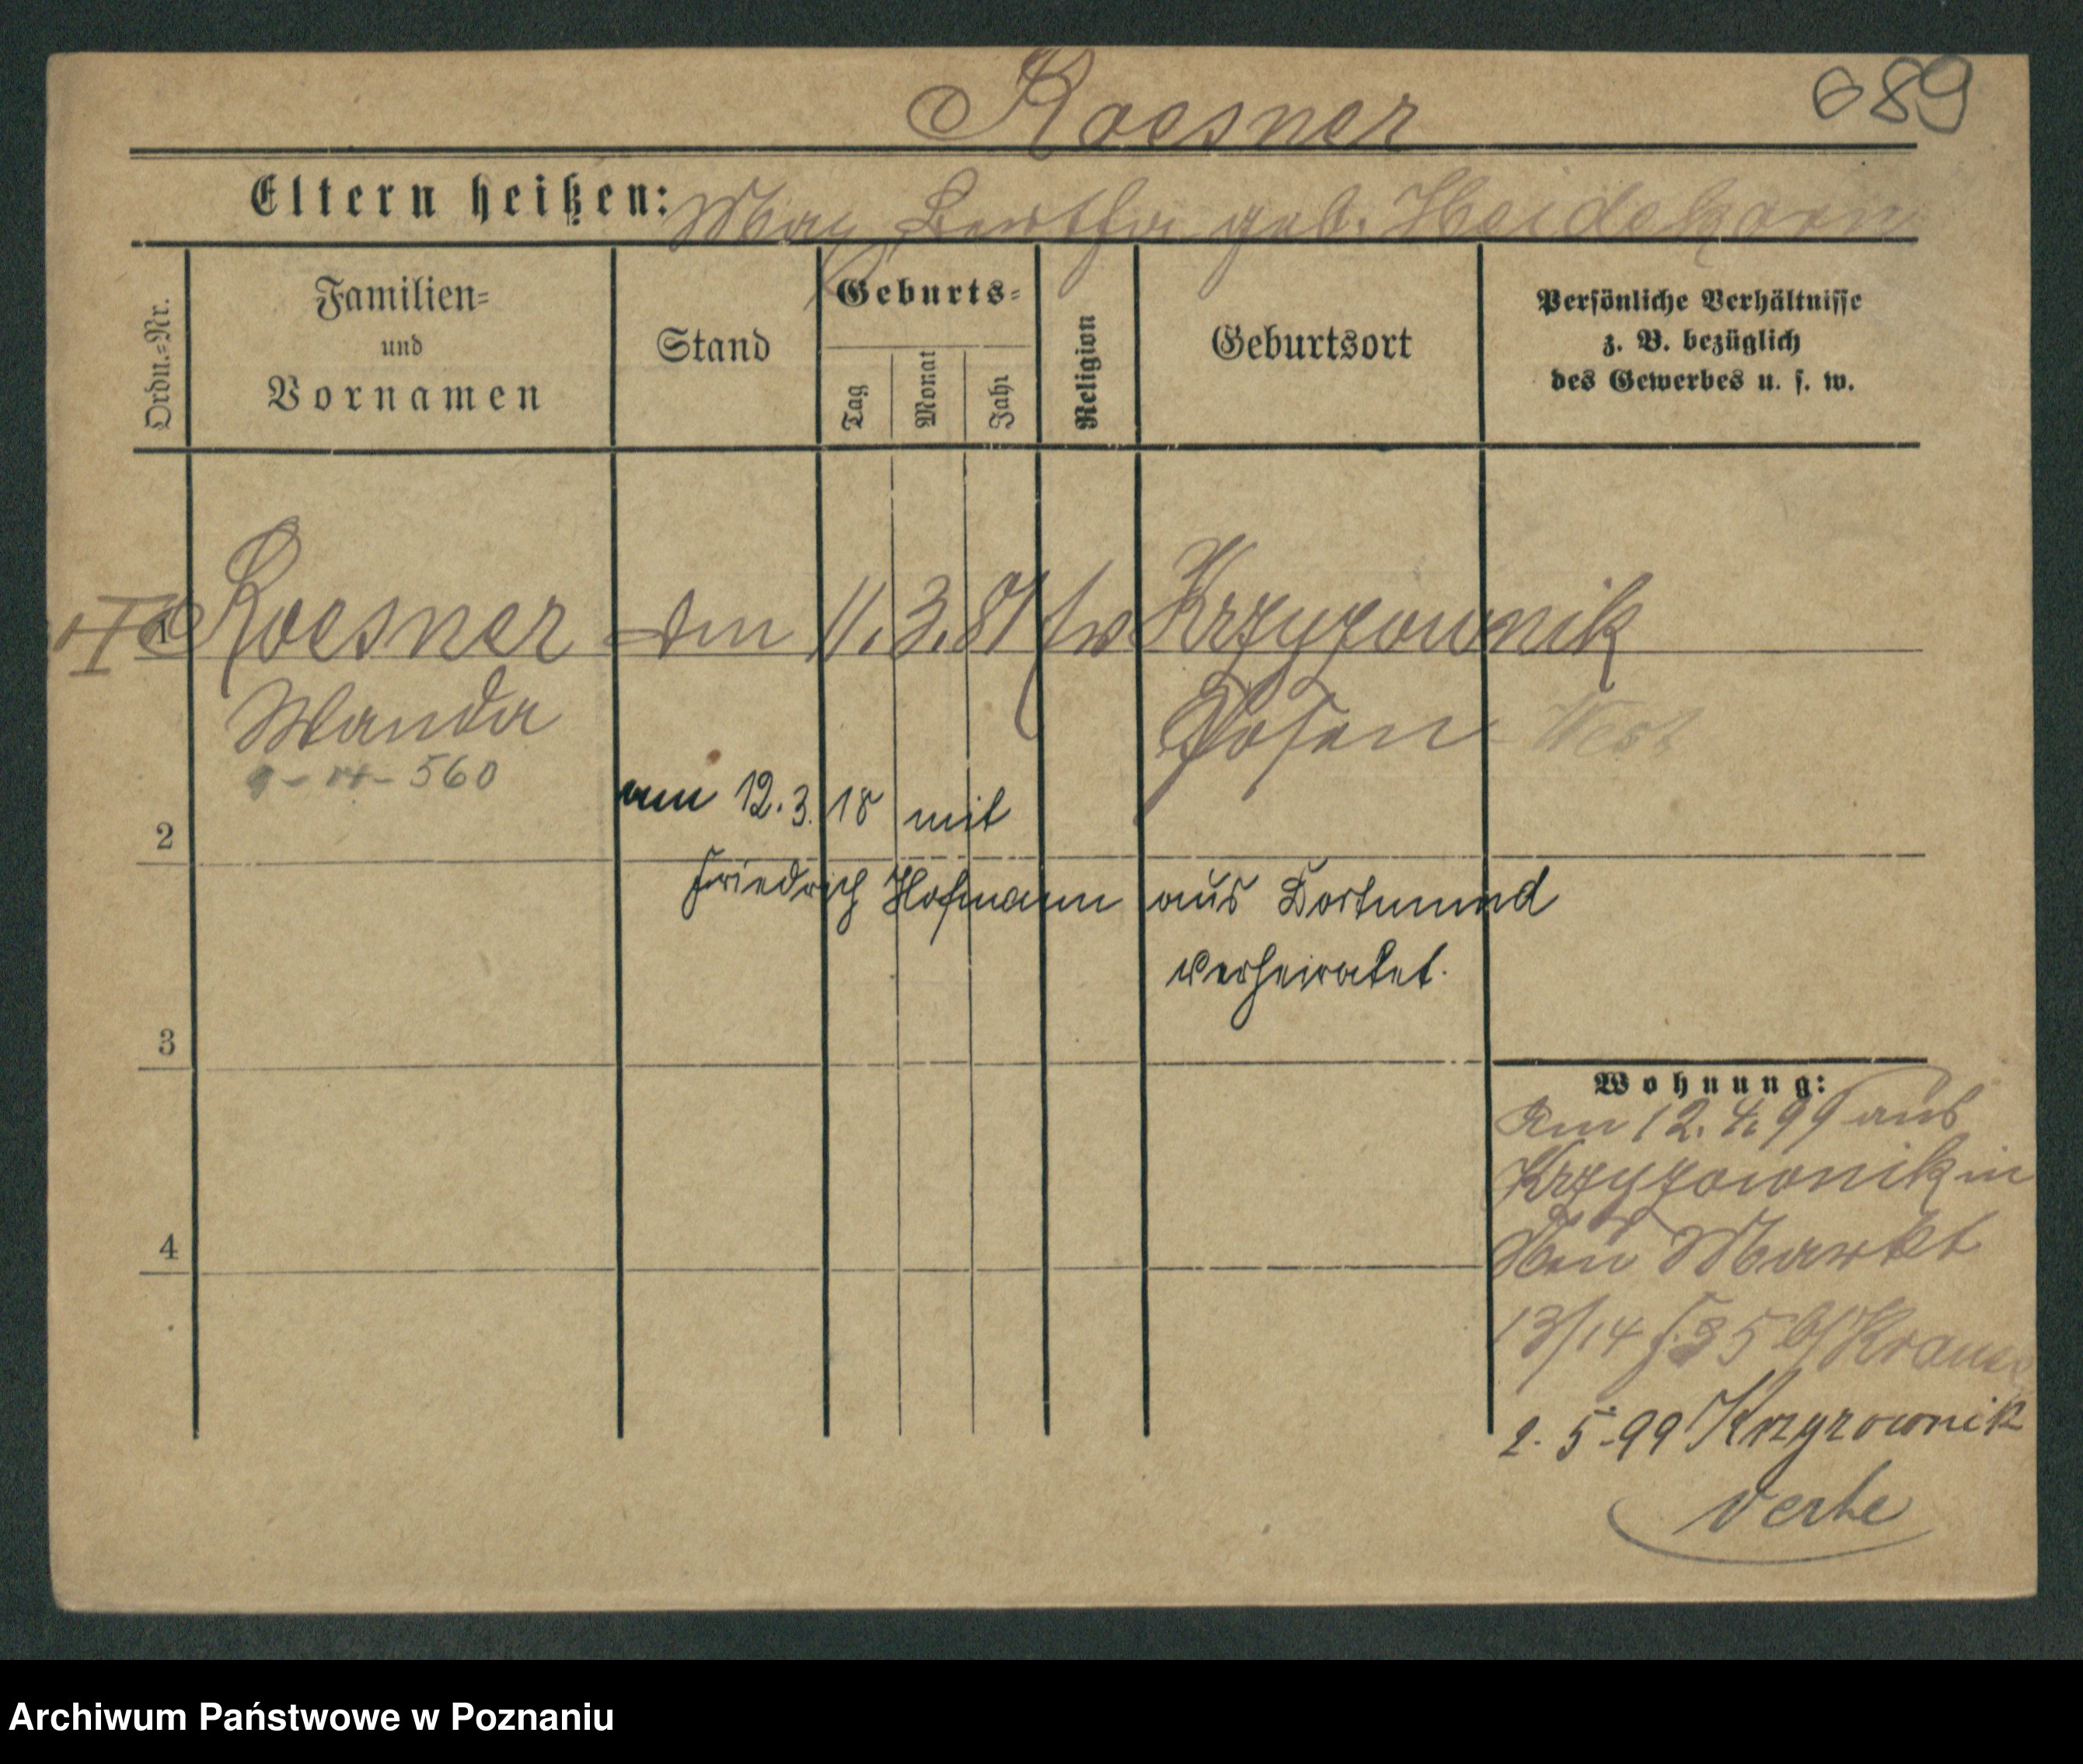 Roesner 689
Eltern heißen: Max Bertha geb. Heidekorn
Ordn.=Nr.
Familien=
und
Vornamen
Stand
Geburts=
Tag
Monat
Jahr
Religion
Geburtsort
Persönliche Verhältnisse
z. B. bezüglich
des Gewerbes u. s. w.
1 Roesner 11. 3. 81 Krzyzownik
Wanda Posen West
560
am 12. 3. 18 mit
2
Friedrich Hofmann aus Dortmund
verheiratet.
3
Wohnung:
Am 12. 4. 99 aus
Krzyzownik in
Neu Markt
4
13/14 Kraus
2. 5. 99 Krzyzownik
Verte
Archiwum Państwowe w Poznaniu